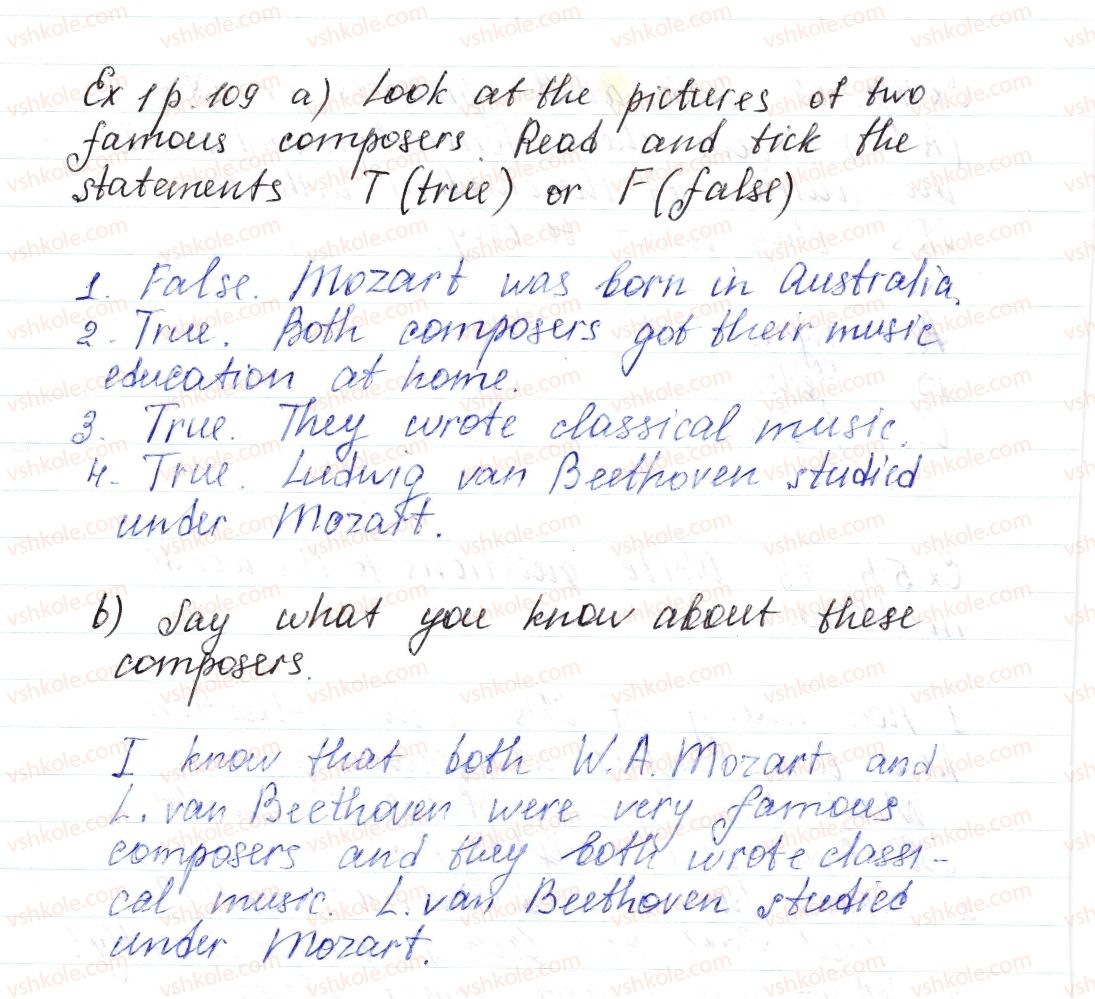 Ex 1 p. 109 a) Look at the pictures of two
famous composers. Read and tick the
statements T (true) or F (false)
1. False. Mozart was born in Australia.
2. True. Both composers got their music
education at home.
3. True. They wrote classical music.
4. True. Ludwig van Beethoven studied
under Mozart.
b) Say what you know about these
composers.
I know that both W.A. Mozart and
L. van Beethoven were very famous
composers and they both wrote classi-
cal music. L. van Beethoven studied
under Mozart.